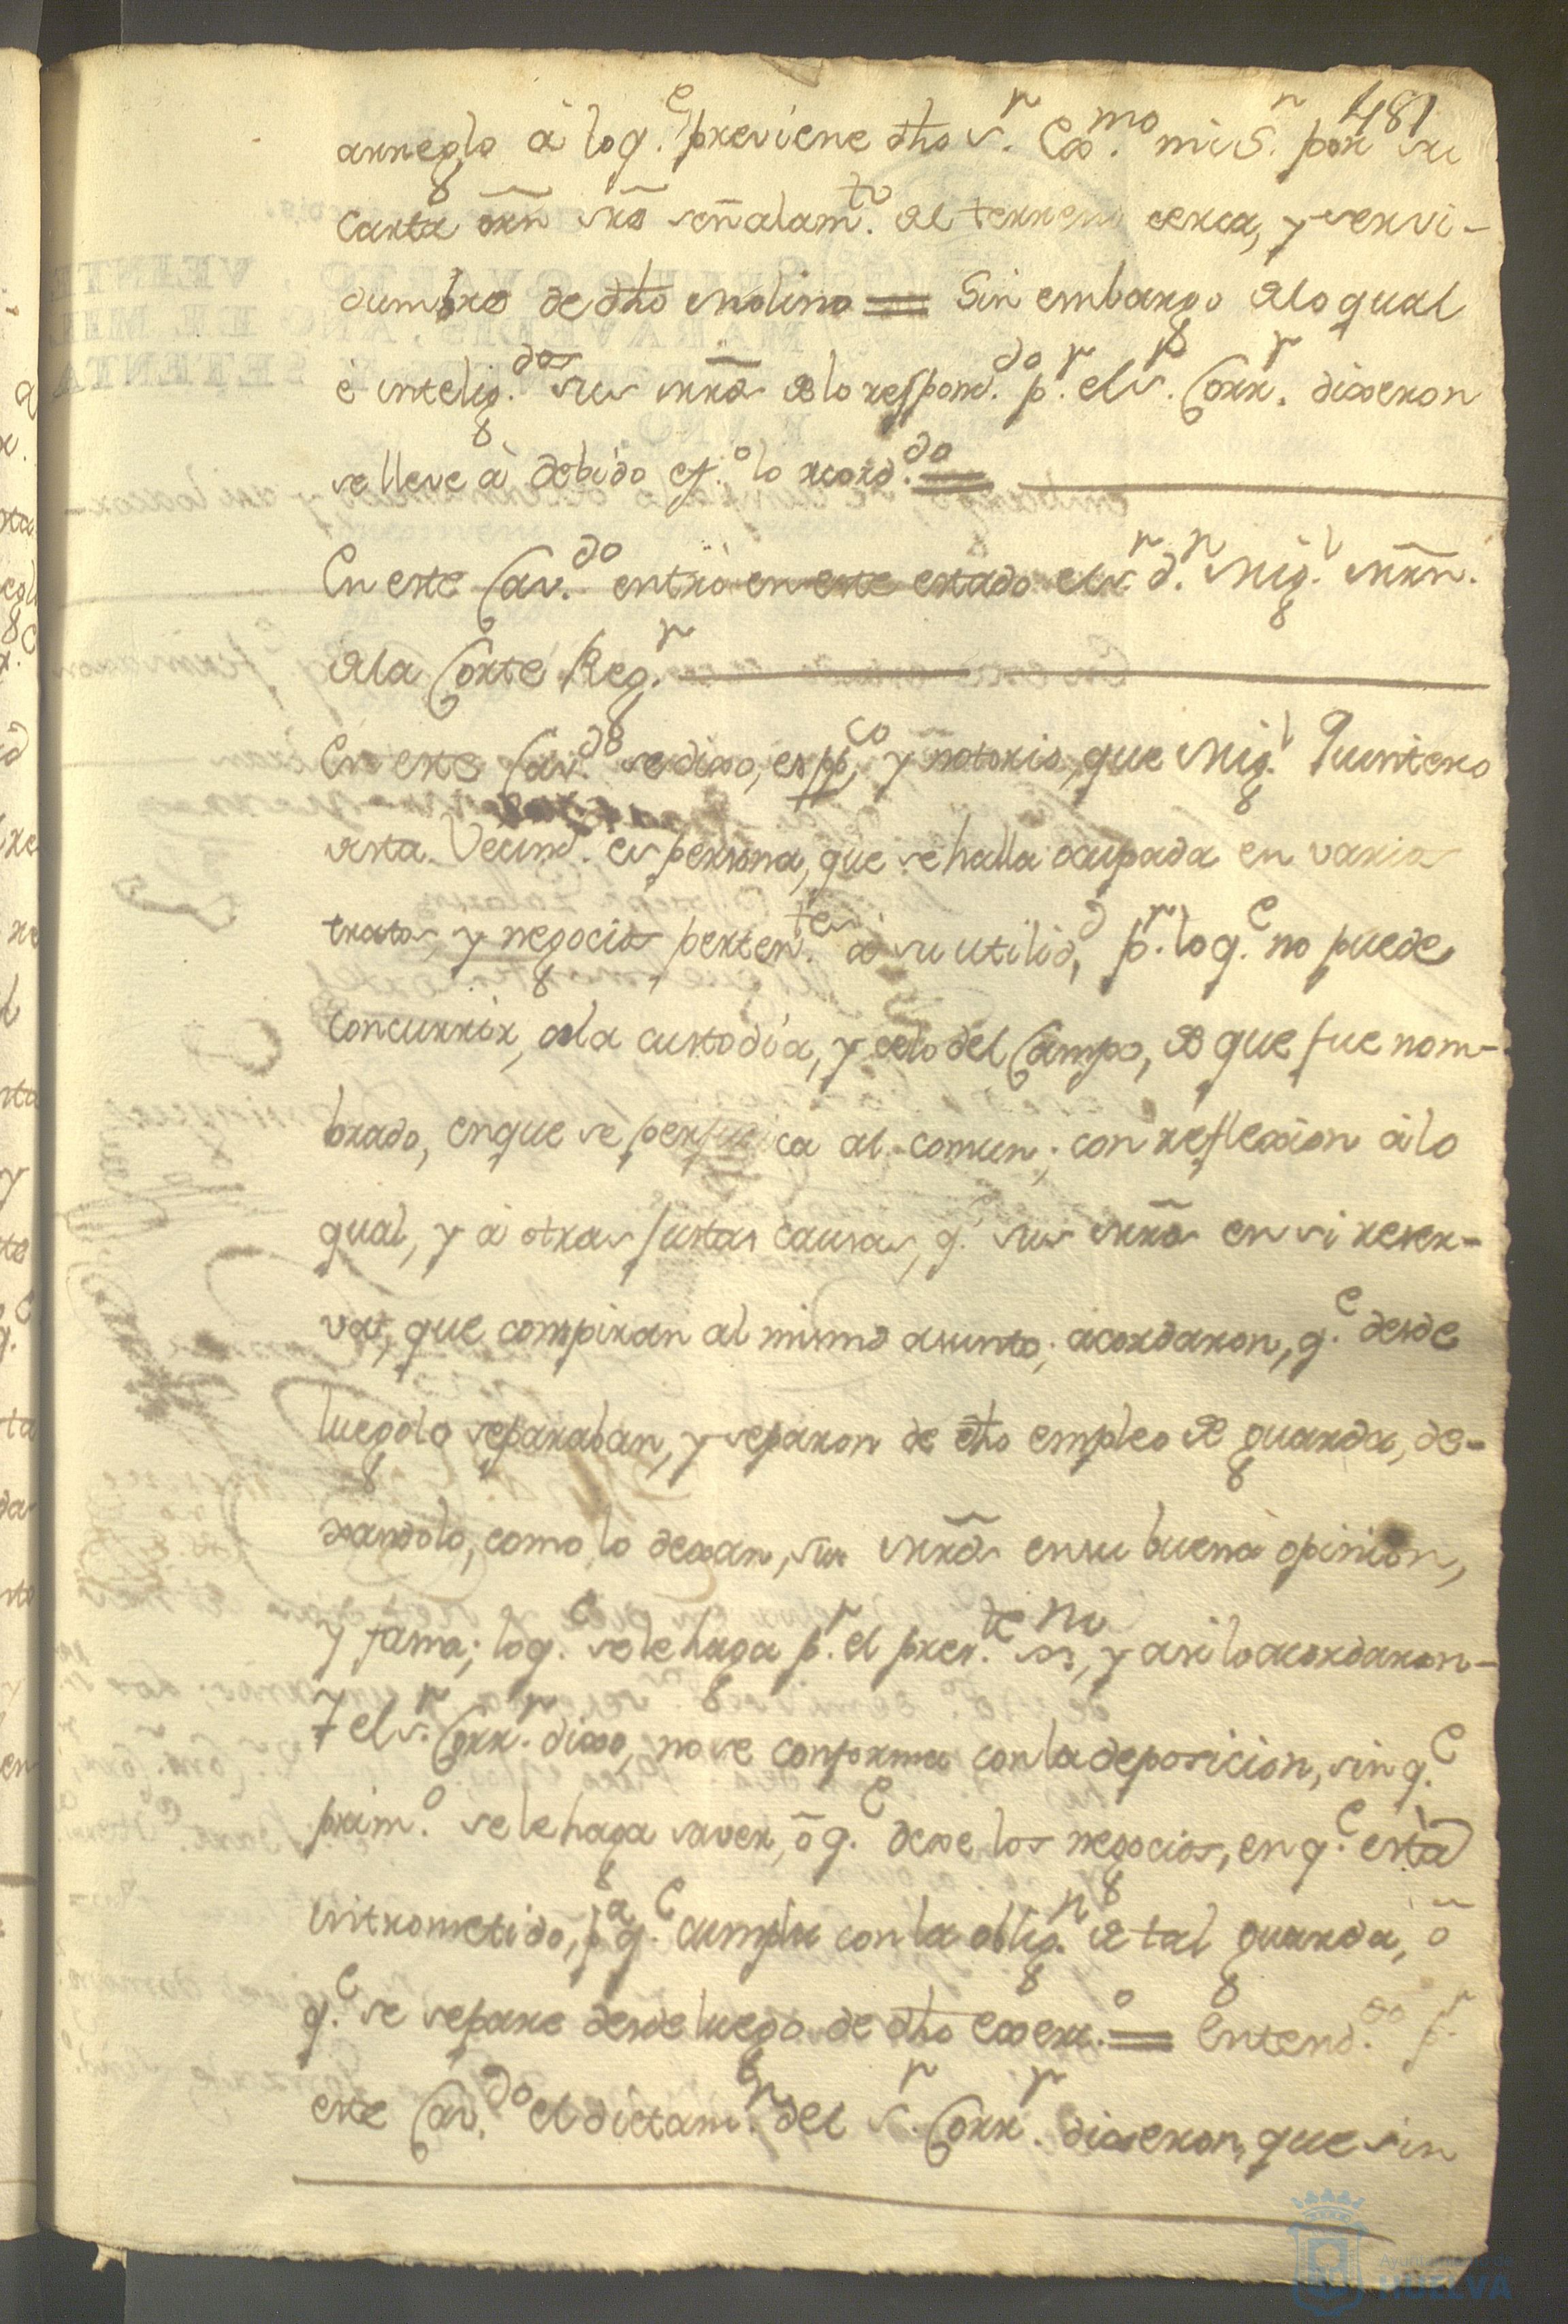 481
arreglo à loq.e previene dho s.r Exc.mo mi S.n por su
carta orñ sre señalam.to del terreno cerca, y servi-
dumbre de dho molino = Sin embargo delo qual
è intelig.dos sus mrds de lo respond.do p.r el s.r Corr.r dixeron
se lleve à debido ef.o lo acord.do =
En este Cav.do entrò en este estado el s.r d.n Mig.l Mrñ.
dela Corte Reg.r
En este Cav.do se dixo, es pp.co y notorio, que Mig.l Quintero
desta Vecind. es persona, que se halla ocupada en varios
tratos, y negocios perten.tes à su utilid.d, p.r loq.e no puede
concurrir, ala custodia, y celo del Campo, de que fue nom-
brado, en que se perjudica al comun; con reflexion à lo
qual, y à otras justas causas, q.e sus mrds en si reser-
van, que conspiran al mismo asunto; acordaron, q.e desde
luego lo separaban, y separon de dho empleo de guarda, de-
xandolo, como lo dexan, sus mrds en su buena opinion,
y fama; loq.e se le haga p.r el pres.te ss.no, y asi lo acordaron-
Y el s.r Corr.r dixo, no se conforma con la deposicion, sin q.e
prim.o se le haga saver, ò q.e dexe los negocios, en q.e està
intrometido, p.a q.e cumpla con la oblig.n de tal guarda, ò
q.e se separe desde luego de dho exerc.o = Entend.do p.r
este Cav.do el dictam.en del s.r Corr.r dixeron, que sin
Ayuntamiento de
HUELVA